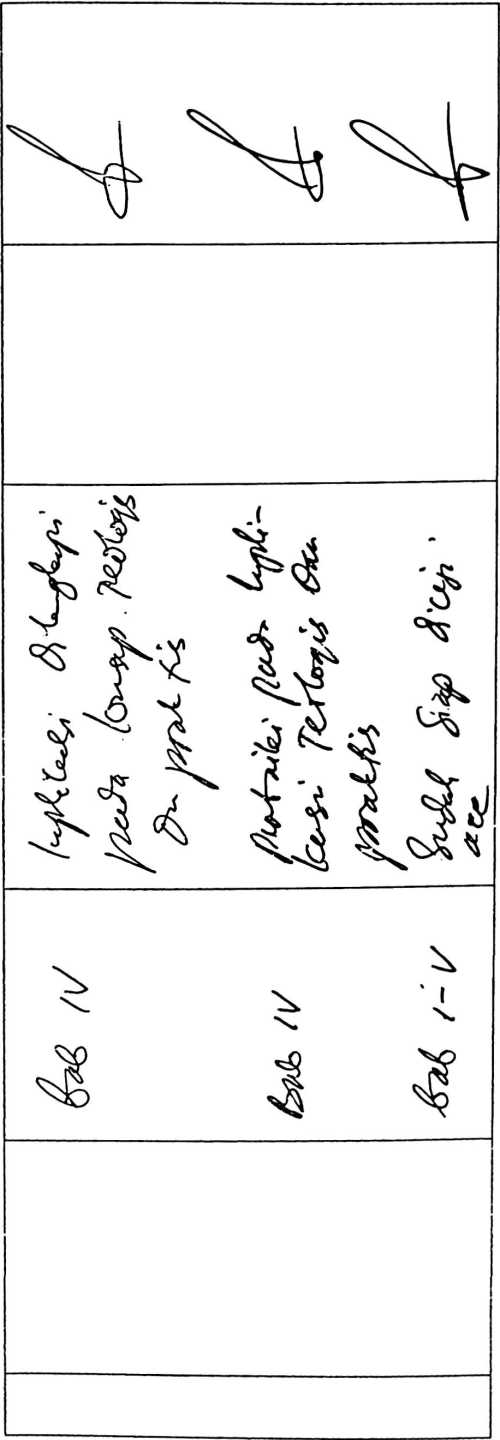 Bab IV
Implikasi dilengkapi
pada konsep teologis
dan praktis
Bab IV
Perbaiki pada Impli-
kasi Teologis dan
praktis
Bab I-V
Sudah siap diuji
acc